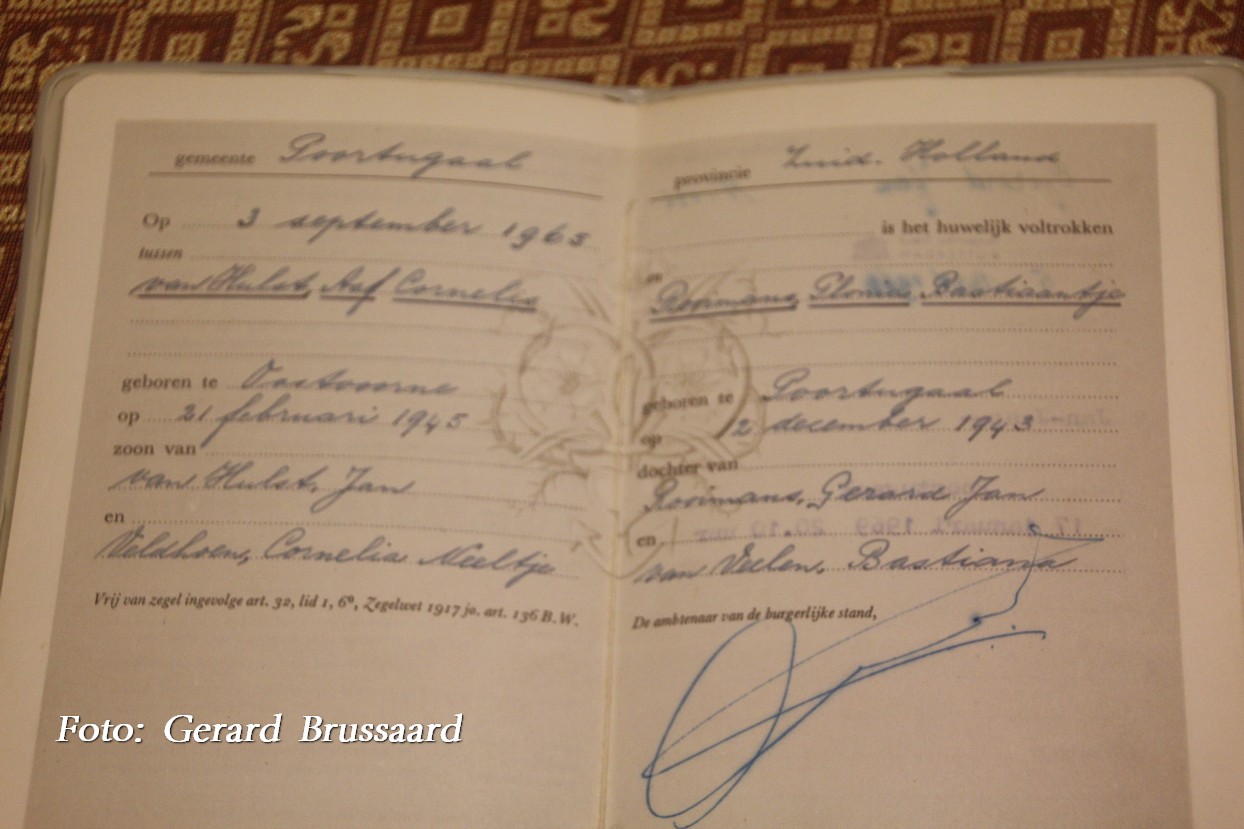 gemeente Poortugaal
Op 3 september 1965
tussen
van Hulst, Aaf Cornelis
geboren te Oostvoorne
op 21 februari 1945
zoon van
van Hulst, Jan
en
Veldhoen, Cornelia Neeltje
Vrij van zegel ingevolge art. 32, lid 1, 6º, Zegelwet 1917 jo. art. 136 B.W.
provincie Zuid-Holland
is het huwelijk voltrokken
en
Rooimans, Plonia Bastiaantje
geboren te Poortugaal
op 2 december 1943
dochter van
Rooimans, Gerard Jan
17 januari 1969 20.10 uur
en
van Velen, Bastiana
De ambtenaar van de burgerlijke stand,
Foto: Gerard Brussaard